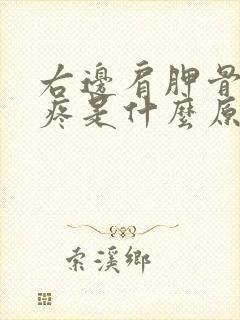 右邊肩胛骨
疼是什麼原
索溪鄉